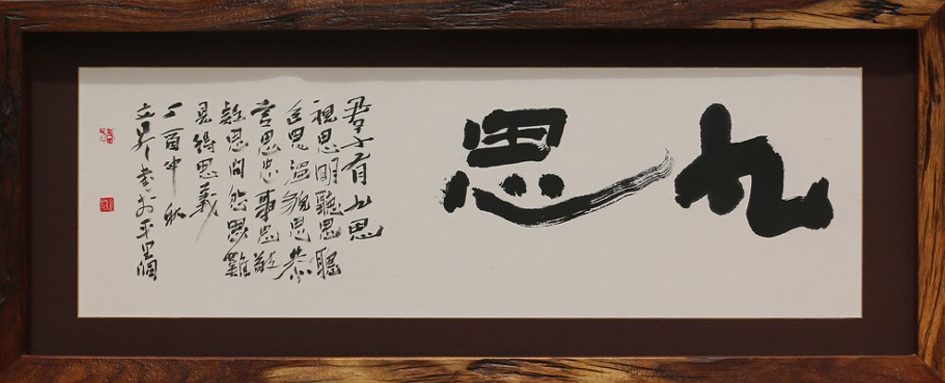 九思
君子有九思
視思明聽思聰
色思溫貌思恭
言思忠事思敬
疑思問忿思難
見得思義
丁酉仲秋
書於平里洞